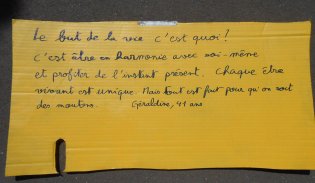 Le but de la vie c'est quoi!
C'est être en harmonie avec soi-même
et profiter de l'instant présent. Chaque être
vivant est unique. Mais tout est fait pour qu'on soit
des moutons. Géraldine, 41 ans